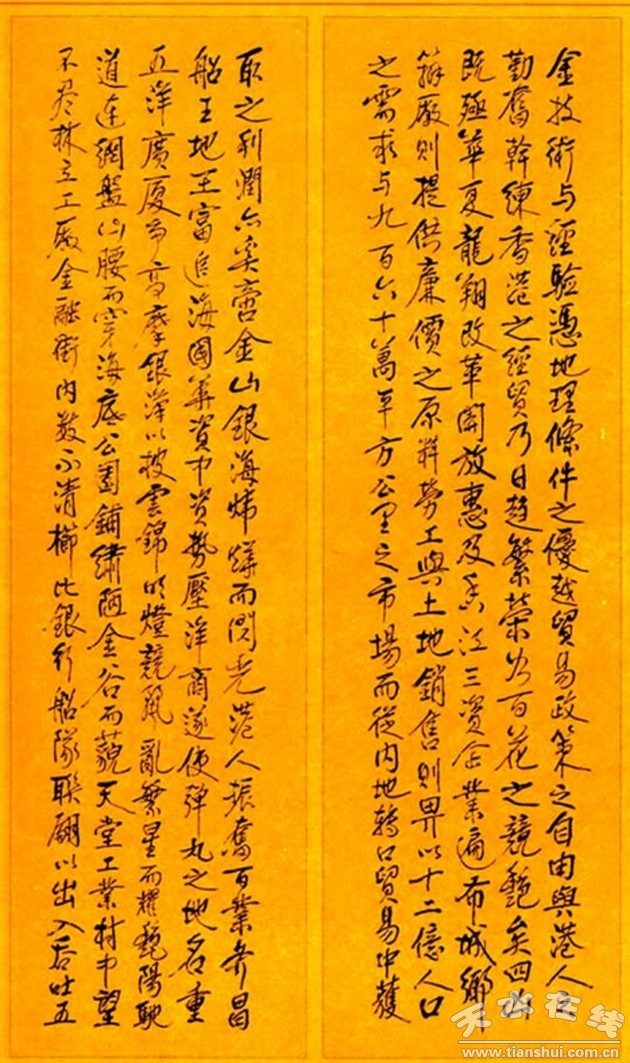 金技術与經驗憑地理條件之優越貿易政策之自由與港人之
勤奮幹練香港之經貿乃日趨繁榮如百花之競艷矣四凶
既殛華夏龍翔改革開放惠及香江三資企業遍布城鄉
籌廠則提供廉價之原料勞工與土地銷售則畀以十二億人口
之需求与九百六十萬平方公里之市場而從内地轉口貿易中獲
取之利潤亦奚啻金山銀海煒燁而閃光港人振奮百業齊昌
船王地王富追海國華資中資勢壓洋商遂使彈丸之地名重
五洋廣厦常高摩銀漢以披雲錦明燈競風亂繁星而耀艷陽馳
道连網盤山腰而穿海底公園鋪繡陋金谷而藐天堂工業村中望
不尽林立工厰金融街内数不清櫛比銀行船隊聯翩以出入吞吐五
天水在线
www.tianshui.com.cn